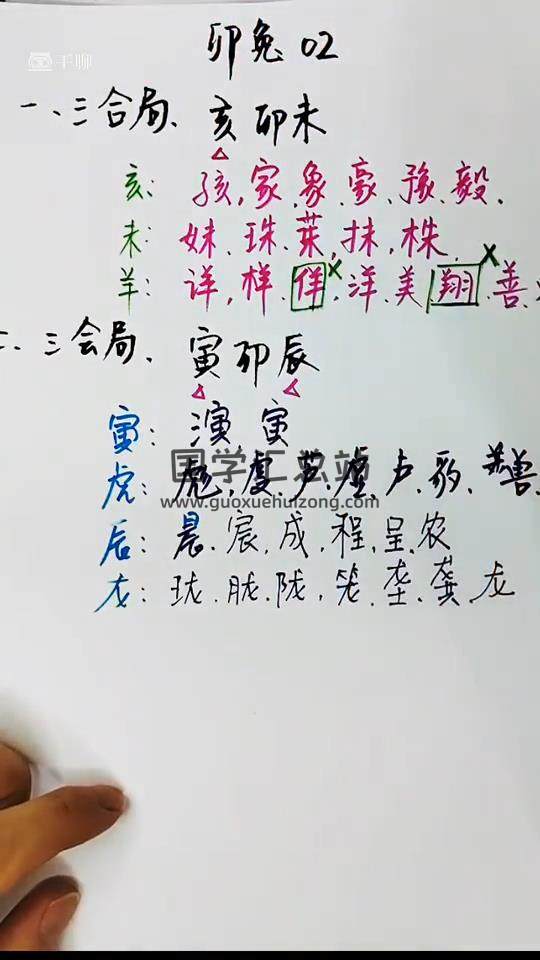 卯兔02
一、三合局、亥卯未
亥：孩,家.象.豪.豫.毅.
未：妹.珠.茱,抹,株.
羊：详,样.佯.洋.美.翔.善.
三会局、寅卯辰
寅：演.寅
国学汇总站
虎：彪,虔.芦.虚.卢.
www.guoxuehuizong.com
辰：晨.宸,成,程.呈.农
龙：珑.胧.陇,笼.垄.龚.龙